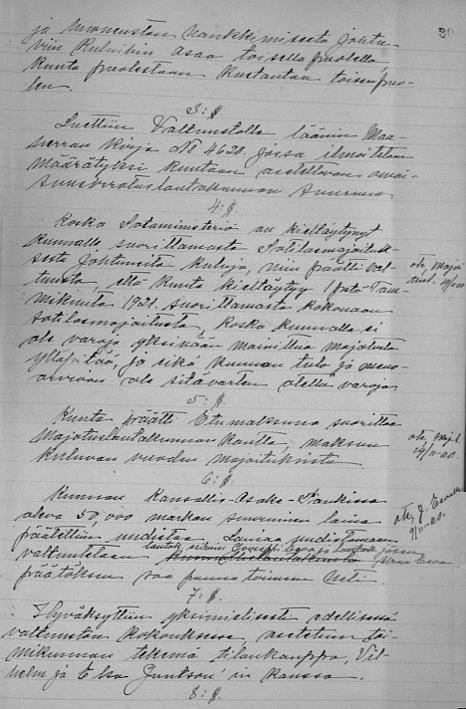 ja muonustan hankkimisesta johtu-
viin kuluihin osaa toisella puolella,
kunta puolestaan kustantaa toisen puo-
len.
3:§.
Luettiin Valtuustolle läänin Maa-
herran kirje № 4620. jossa ilmoitetaan
määrätyksi kuntaan asetettavan
4:§.
Koska Sotaministeriö on kieltäytynyt
kunnalle suorittamasta Sotilasmajoituk-
sesta johtuneita kuluja, niin päätti val-
tuusto, että kunta kieltäytyy 1 pstä Tam-
mikuuta 1921. suorittamasta kokonaan
sotilasmajoitusta, koska kunnalla ei
ole varoja yksinään mainittua majotusta
ylläpitää ja eikä kunnan tulo ja meno-
arvioon ole sitä varten otettu varoja
5:§.
Kunta päätti Etumaksuna suorittaa
Majotuslautakunnan kautta, maksun
kuluvan vuoden majoituksista.
6:§.
Kunnan Kansallis-Osake-Pankissa
oleva 50,000 markan suuruinen laina
päätettiin uudistaa. Lainaa uudistamaan
valtuutetaan
päätöksen saa panna toimeen heti.
7:§.
Hyväksyttiin yksimielisesti edellisessä
valtuuston kokouksessa, asetetun toi-
mikunnan tekemä tilankauppa, Vil-
helm ja Elsa Juntson'in kanssa.
8:§.